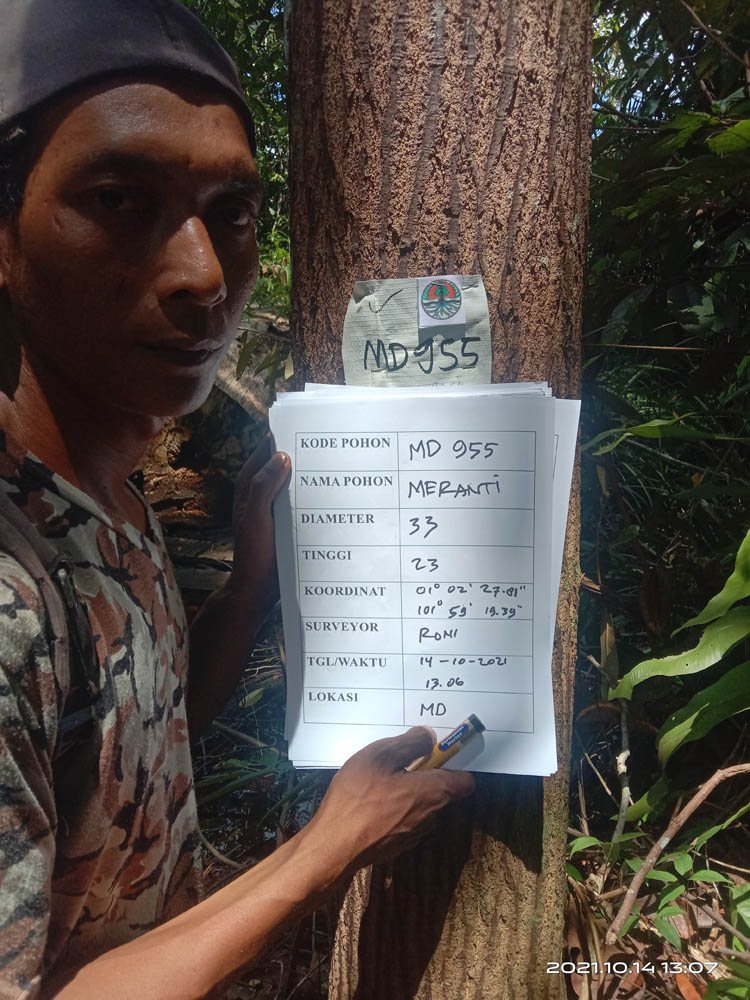 MD 955
KODE POHON MD 955
NAMA POHON MERANTI
DIAMETER 33
TINGGI 23
KOORDINAT 01° 02' 27.81"
101° 59' 19.39"
SURVEYOR RONI
TGL/WAKTU 14-10-2021
13.06
LOKASI MD
2021.10.14 13:07